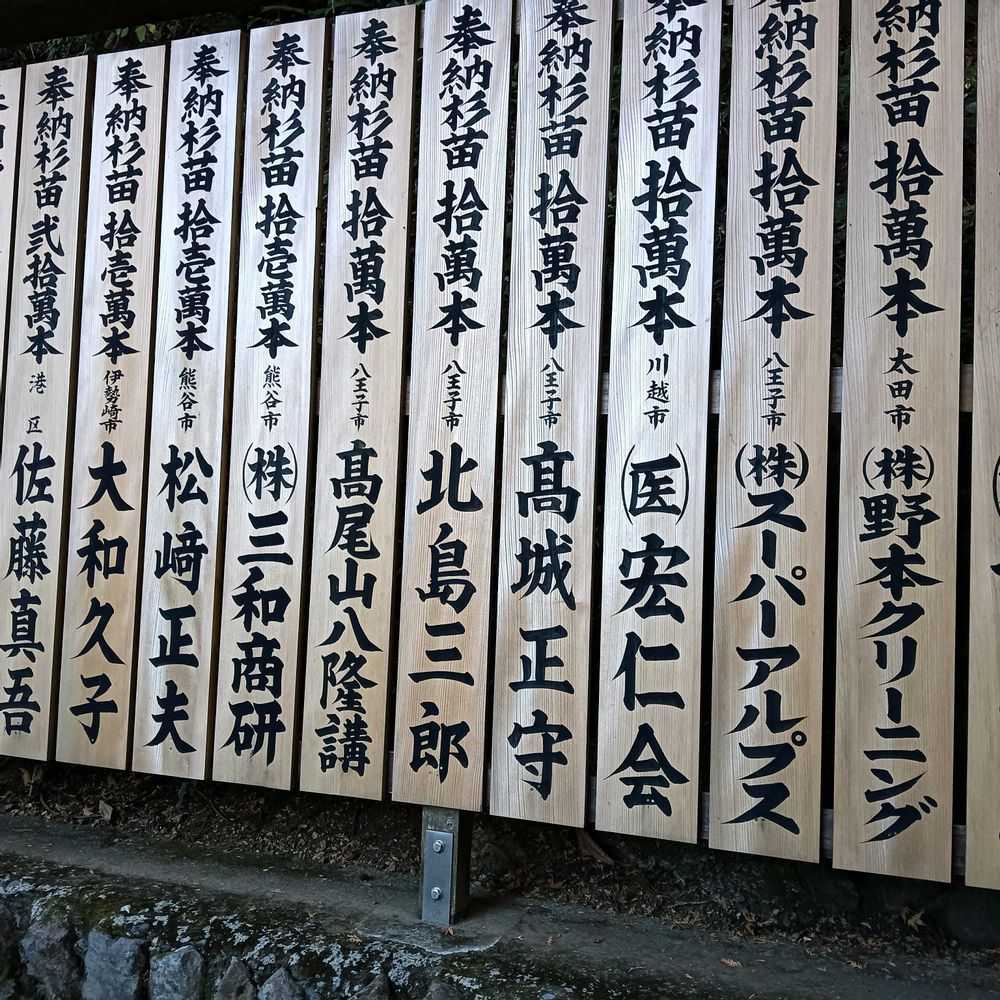 奉納杉苗 拾萬本 太田市 ㈱野本クリーニング
納杉苗 拾萬本 八王子市 ㈱スーパーアルプス
納杉苗 拾萬本 川越市 (医)宏仁会
奉納杉苗 拾萬本 八王子市 髙城正守
奉納杉苗 拾萬本 八王子市 北島三郎
奉納杉苗 拾萬本 八王子市 高尾山八隆講
奉納杉苗 拾壱萬本 熊谷市 ㈱三和商研
奉納杉苗 拾壱萬本 熊谷市 松﨑正夫
奉納杉苗 拾壱萬本 伊勢崎市 大和久子
奉納杉苗 弐拾萬本 港区 佐藤真吾